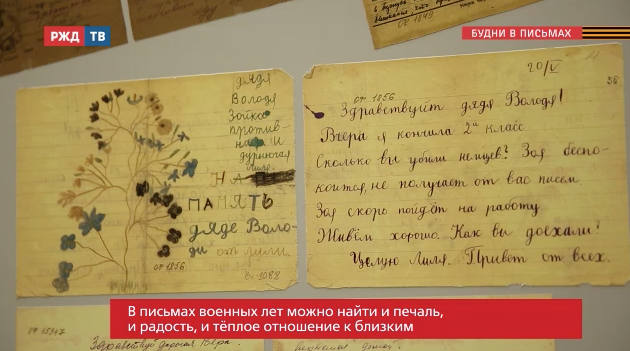 РЖД ТВ
БУДНИ В ПИСЬМАХ
оф 1849
дядя
Володя
Зойка
против-
ная и
дурногая
НА
ПАМЯТЬ
дяде Воло-
ди от лили.
оф 1856
вх-1088
20/V
38
оф 1856
Здравствуйт дядя Володя!
Вчера я кончила 2й класс
Сколько вы убили немцев? Зоя беспо-
коится, не получает от вас писем
Зоя скоро пойдёт на работу
Живём хорошо. Как вы доехали?
Целую Лиля. Привет от всех.
В письмах военных лет можно найти и печаль,
и радость, и тёплое отношение к близким
оф 15317
Здравствуй дорогая Вера.